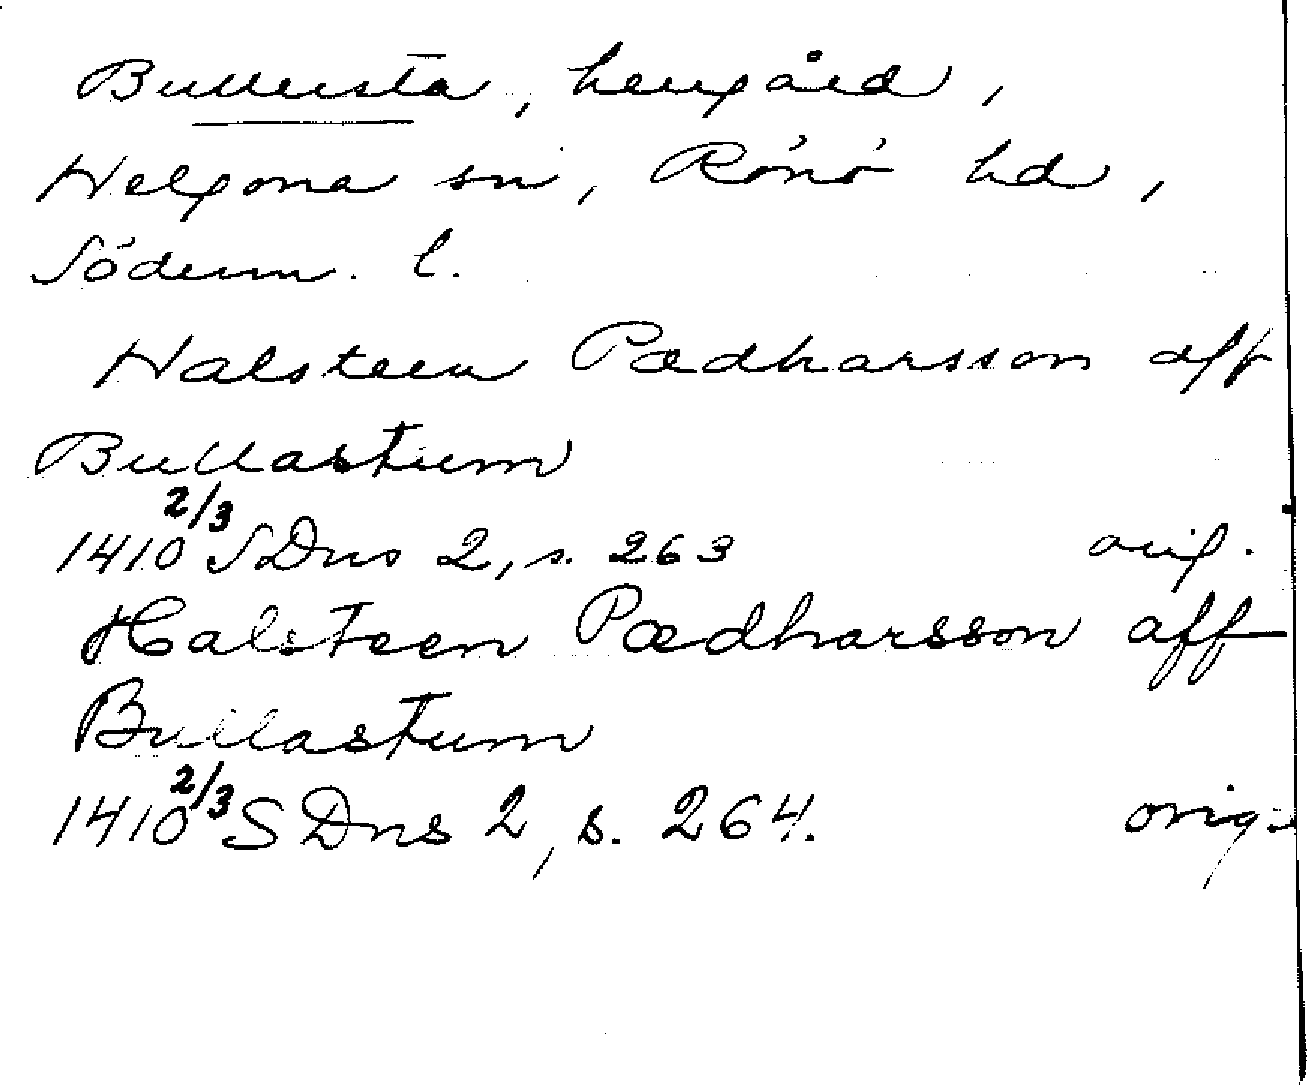 Bullersta, herrgård,
Helgona sn, Rönö hd,
Söderm. l.
Halsteen Pædharsson aff
Bullastum
1410 2/3 SDns 2, s. 263 orig.
Halsteen Pædharsson aff
Bullastum
1410 2/3 SDns 2, s. 264. orig.